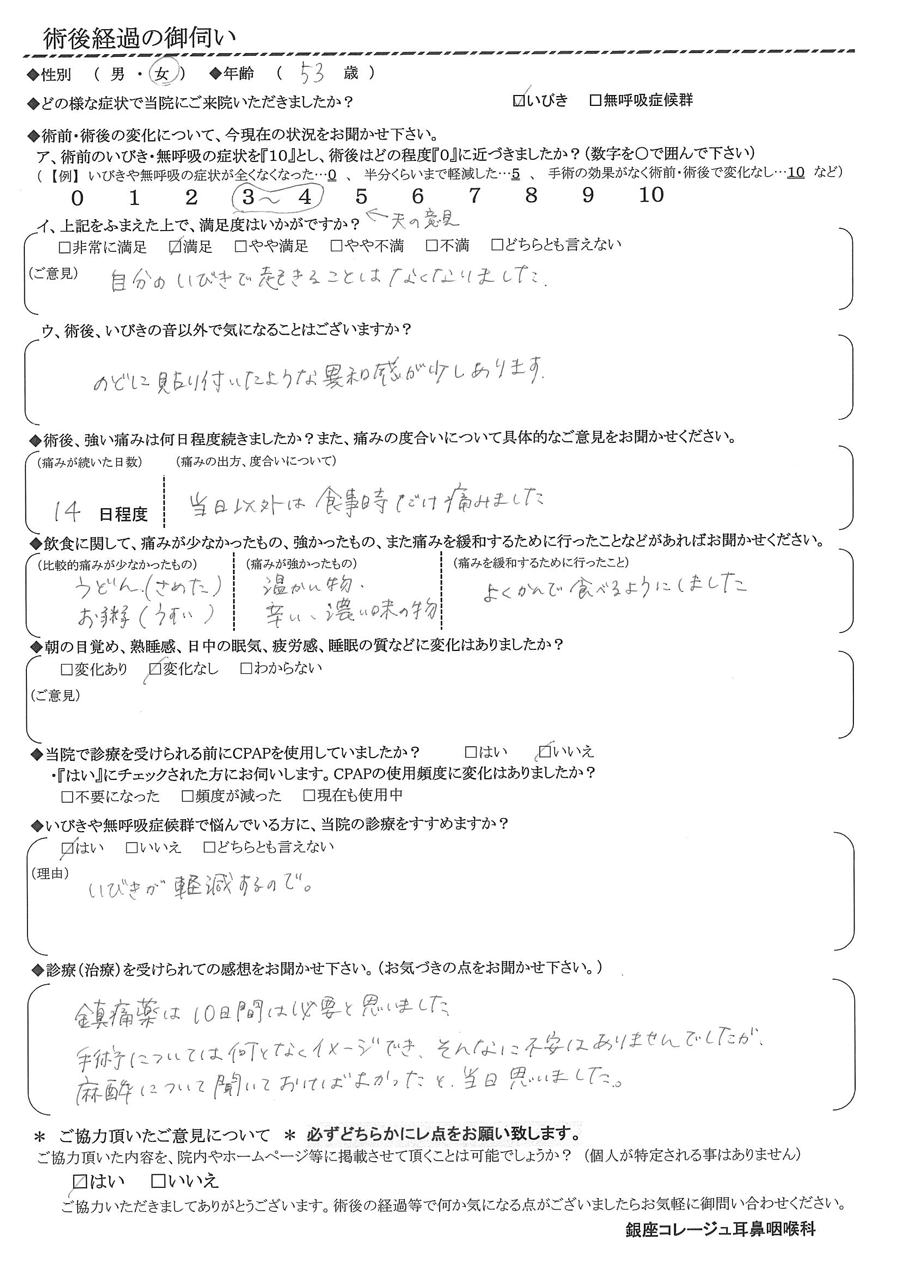 術後経過の御伺い
◆性別 （ 男 ・ 女 ） ◆年齢 （ 53 歳 ）
◆どの様な症状で当院にご来院いただきましたか？ ☑いびき □無呼吸症候群
◆術前・術後の変化について、今現在の状況をお聞かせ下さい。
ア、術前のいびき・無呼吸の症状を『10』とし、術後はどの程度『0』に近づきましたか？（数字を〇で囲んで下さい）
（【例】いびきや無呼吸の症状が全くなくなった…0 、 半分くらいまで軽減した…5 、 手術の効果がなく術前・術後で変化なし…10 など）
0 1 2 3～4 5 6 7 8 9 10
イ、上記をふまえた上で、満足度はいかがですか？ ←夫の意見
□非常に満足 ☑満足 □やや満足 □やや不満 □不満 □どちらとも言えない
（ご意見） 自分のいびきで起きることはなくなりました.
ウ、術後、いびきの音以外で気になることはございますか？
のどに貼り付いたような異和感が少しあります.
◆術後、強い痛みは何日程度続きましたか？また、痛みの度合いについて具体的なご意見をお聞かせください。
（痛みが続いた日数） （痛みの出方、度合いについて）
14 日程度 当日以外は食事時だけ痛みました
◆飲食に関して、痛みが少なかったもの、強かったもの、また痛みを緩和するために行ったことなどがあればお聞かせください。
（比較的痛みが少なかったもの） （痛みが強かったもの） （痛みを緩和するために行ったこと）
うどん.（さめた） 温かい物. よくかんで食べるようにしました
お粥（うすい） 辛い、濃い味の物
◆朝の目覚め、熟睡感、日中の眠気、疲労感、睡眠の質などに変化はありましたか？
□変化あり ☑変化なし □わからない
（ご意見）
◆当院で診療を受けられる前にCPAPを使用していましたか？ □はい ☑いいえ
・『はい』にチェックされた方にお伺いします。CPAPの使用頻度に変化はありましたか？
□不要になった □頻度が減った □現在も使用中
◆いびきや無呼吸症候群で悩んでいる方に、当院の診療をすすめますか？
☑はい □いいえ □どちらとも言えない
（理由） いびきが軽減するので。
◆診療（治療）を受けられての感想をお聞かせ下さい。（お気づきの点をお聞かせ下さい。）
鎮痛薬は10日間は必要と思いました
手術については何となくイメージでき、そんなに不安はありませんでしたが、
麻酔について聞いておけばよかったと、当日思いました。
＊ ご協力頂いたご意見について ＊ 必ずどちらかにレ点をお願い致します。
ご協力頂いた内容を、院内やホームページ等に掲載させて頂くことは可能でしょうか？（個人が特定される事はありません）
☑はい □いいえ
ご協力いただきましてありがとうございます。術後の経過等で何か気になる点がございましたらお気軽に御問い合わせください。
銀座コレージュ耳鼻咽喉科